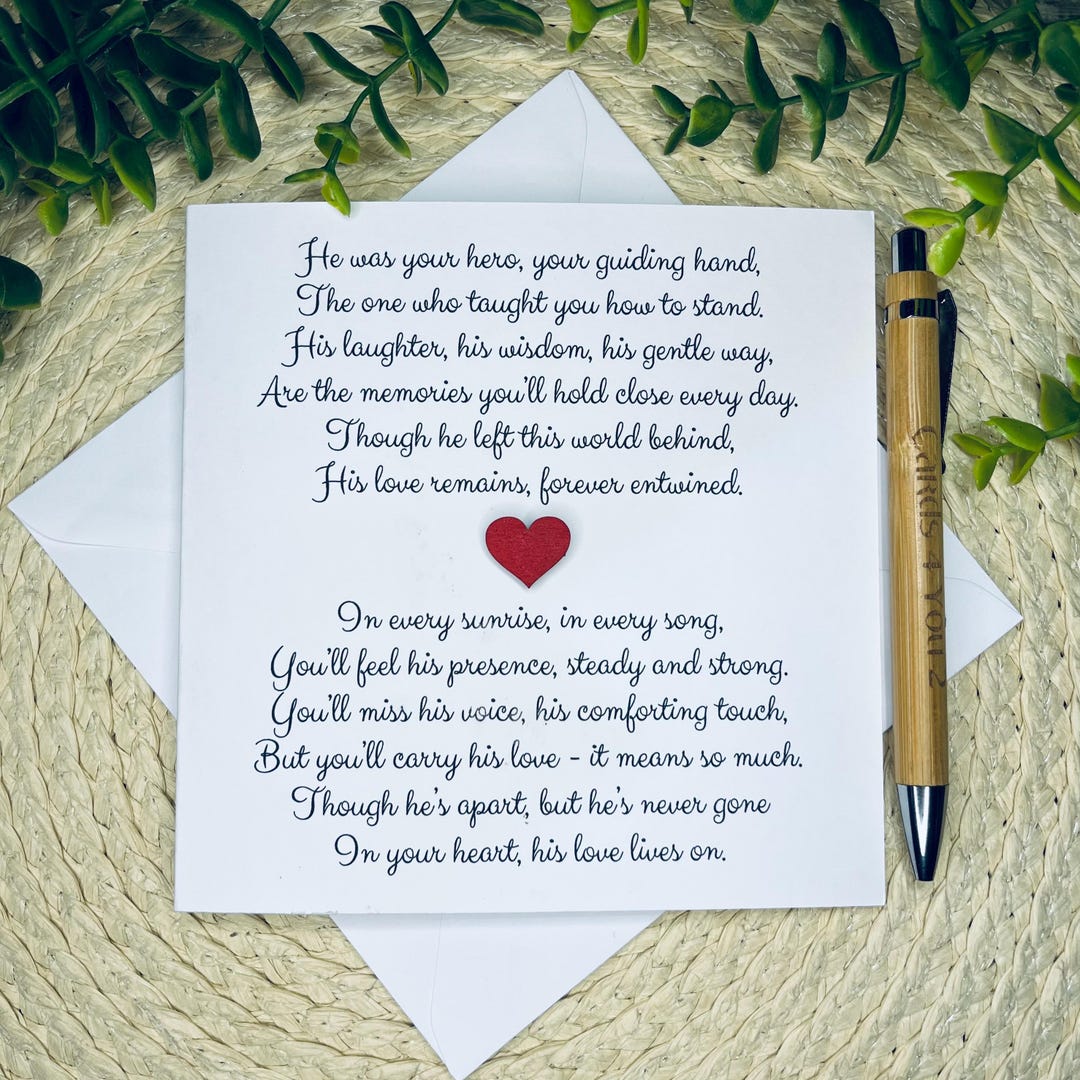 He was your hero, your guiding hand,
The one who taught you how to stand.
His laughter, his wisdom, his gentle way,
Are the memories you'll hold close every day.
Though he left this world behind,
His love remains, forever entwined.
In every sunrise, in every song,
You'll feel his presence, steady and strong.
You'll miss his voice, his comforting touch,
But you'll carry his love - it means so much.
Though he's apart, but he's never gone
In your heart, his love lives on.
Cards 4 You 2